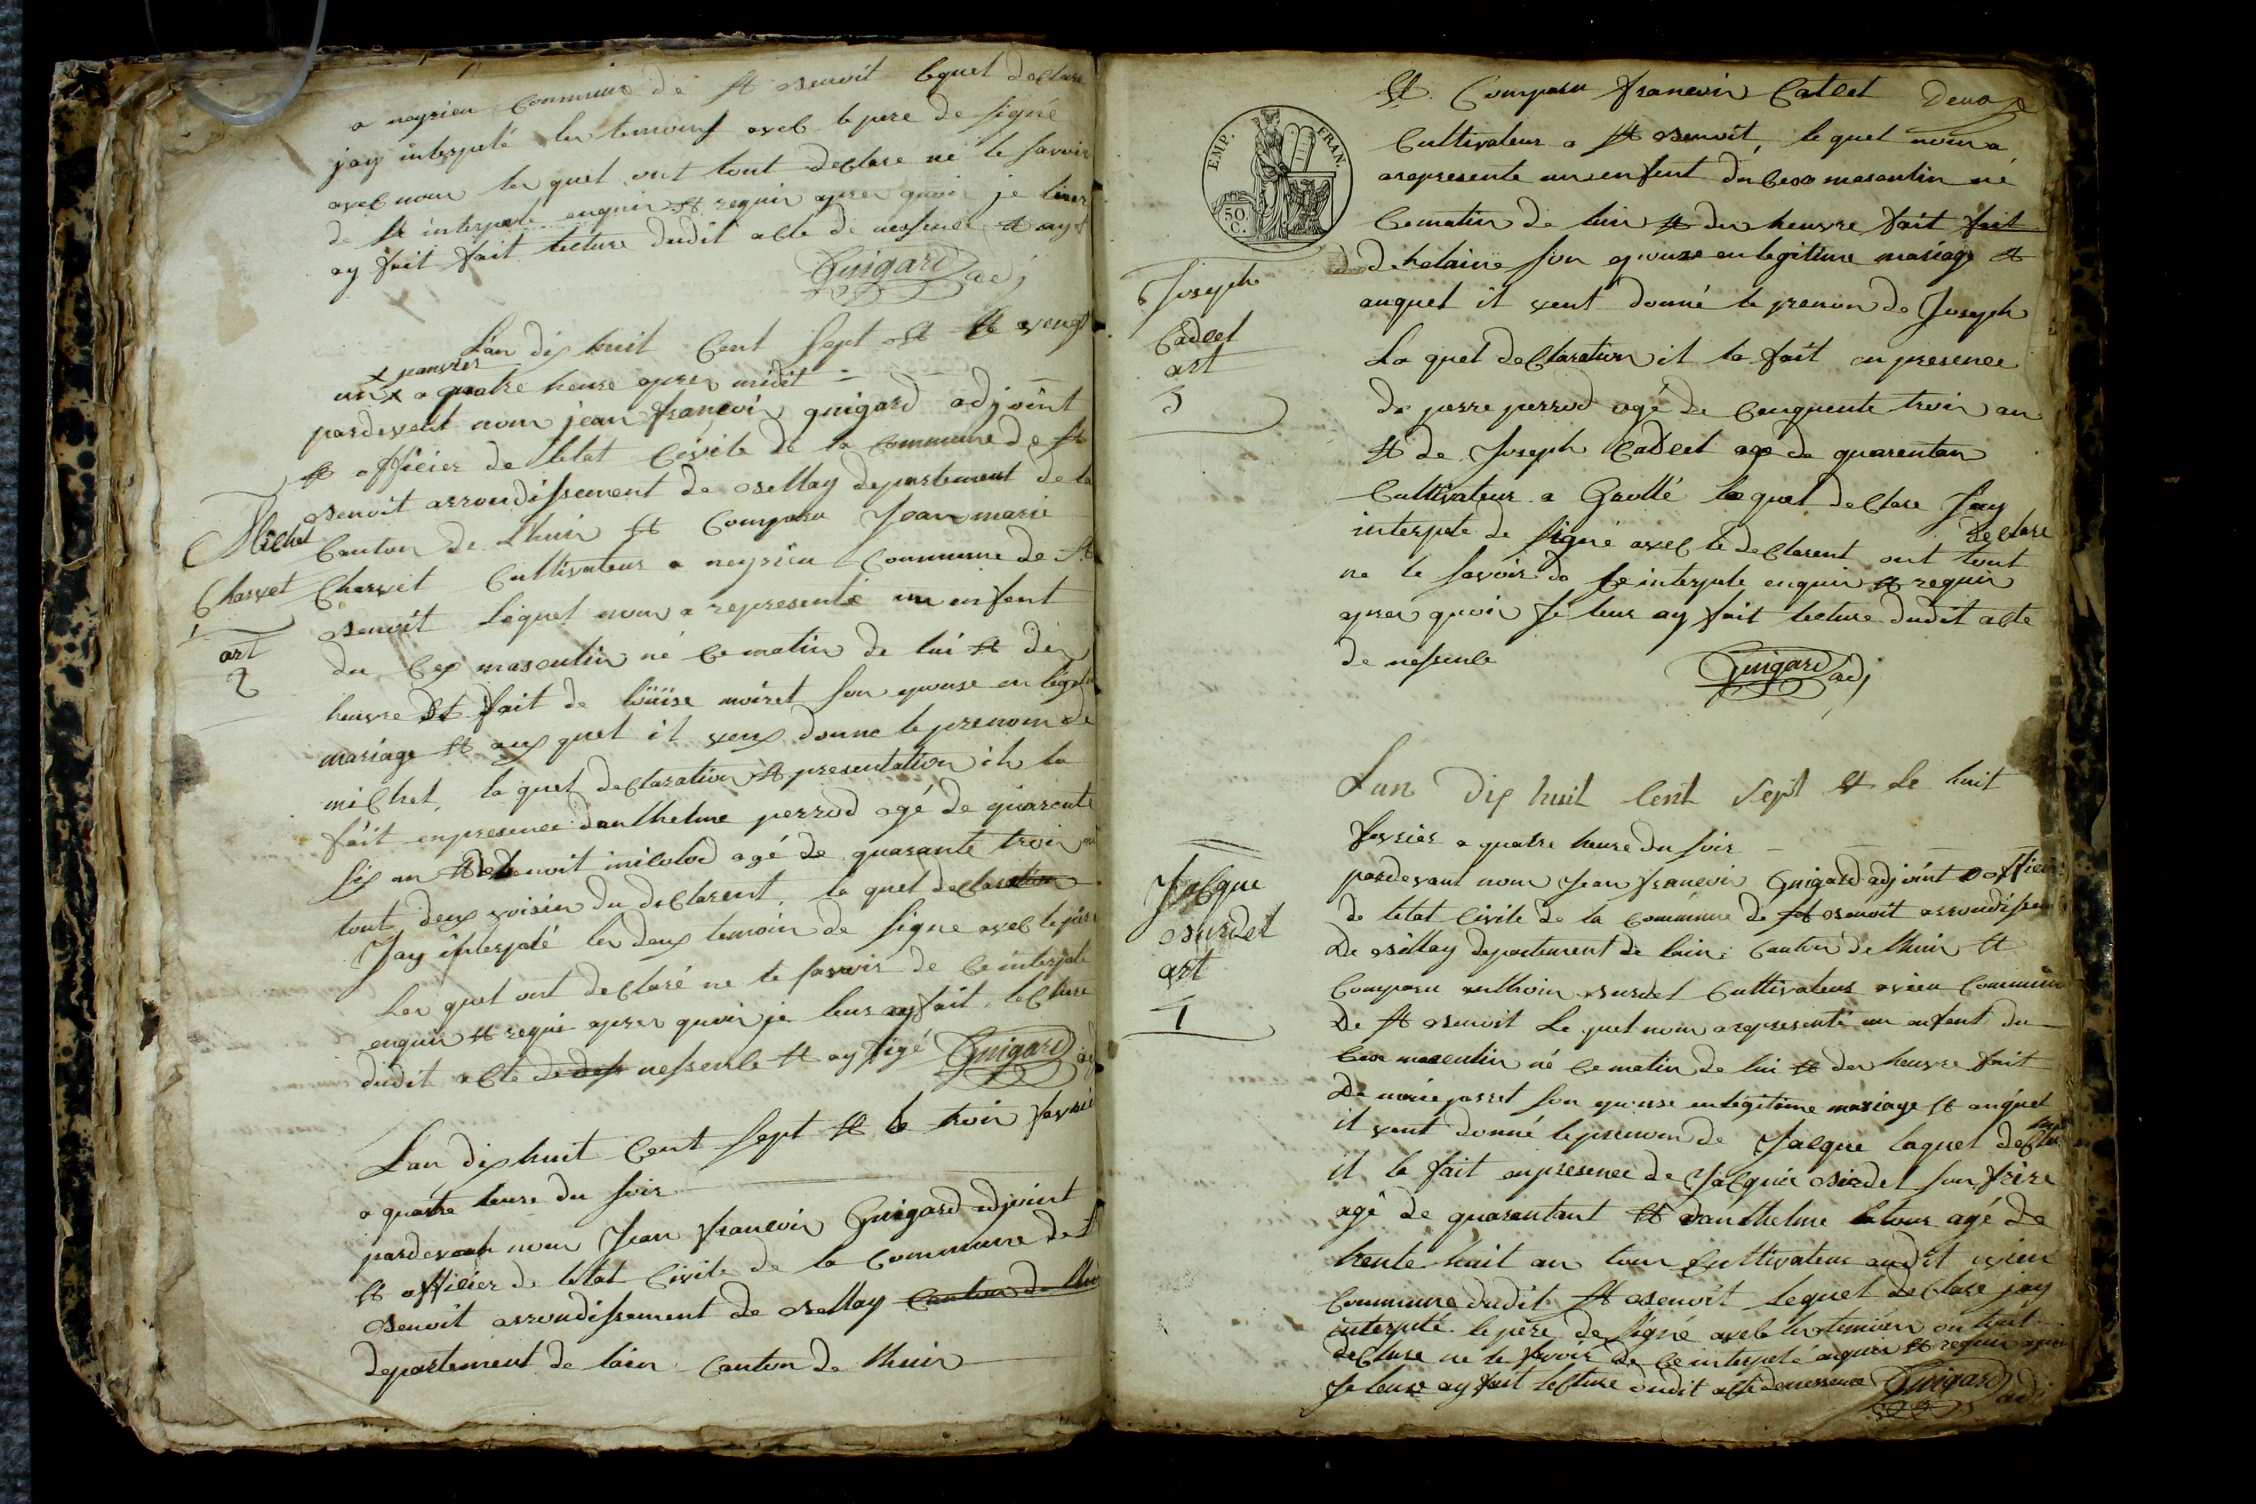 a neyrieu Commune de St Benoit lequel declare
jay interpelé les temoins avec le pere de signé
avec nous les quel ont tout declare ne le savoir
de ce interpele enquis et requis apres quoi je leurs
ay fait fait lecture dudit acte de nessence et ay
Guigard adj
L'an dix huit Cent Sept et le vengt
x janvier
un x a quatre heure apres midit
pardevant nous jean françois guigard adjoint
et officier de letat Civile de la Commune de St
Benoit arrondissement de Bellay departement de la
Canton de Lhuis et Comparu Jean marie
Michel
Charvet
art
2
Charvet Cultivateur a neyrieu Commune de St
Benoit lequel nous a representé un enfent
du Cex masculin né Ce matin de lui et dix
heuvre et fait de loüise moiret son epouse en legit
mariage et aux quel il veux donne le prenom de
michel, la quel declaration et presentation il la
fait en presence danthelme perrod agé de quarente
six an et de benoit milolod agé de quarante trois an
tout deux voisin du declarent, la quel declaration
Jay interpelé les deux temoin de signe avec le pere
les quel ont declaré ne le savoir de Ce interpele
enquis et requi apres quoi je leurs ay fait lecture
dudit acte de dess nessence et ay sigé Guigard adj
Lan dix huit Cent sept et le trois fevrie
a quatre heure du soir
pardevant nous Jean françois Guigard adjoint
et officier de letat Civile de la Commune de St
Benoit arrondissement de Bellay Canton de Lhui
departement de lain Canton de lhuis
EMP. FRAN.
50.
C.
deux
Et Comparu françois Cadlet
Cultivateur a St Benoit, le quel nous a
arepresente un enfent du Cexe masculin né
Ce matin de lui et dix heuvre fait fait
d helaine son epouse en legitime mariage et
auquel il veut donné le prenon de Joseph
Joseph
Cadlet
art
3
La quel declaration il la fait en presence
de pierre perrod agé de Cenquente trois an
et de Joseph Cadlet age de quarentan
Cultivateur a Groslé lequel declare Jay
interpele de signé avec le declarent ont tout
declare
ne le savoir de Ce interpele enquis et requis
apres quoi Je leur ay fait lecture dudit acte
de nessence
Guigard adj
Lan dix huit Cent Sept et Le huit
fevrier a quatre heure du soir
pardevant nous Jean françois Guigard adjoint officier
de letat Civile de la Commune de St Benoit arrondissem
De Billay departement de lain Canton de lhuis et
Jacque
Burdet
art
4
Comparu anthoin Burdet Cultivateur Commune
De St Benoit Le quel nous a representé un enfent du
Cexe masculin né Ce matin de lui et dix heuvre fait
De marie son epouse en legitime mariage et auquel
il veut donné le prenom de Jacque laquel decla
il la fait en presence de Jacque Burdet son frère
agé de quarentant et danthelme latour agé de
trente huit an tous Cultivateur audit
Commune dudit St Benoit Lequel declare jay
interpelé le père de signé avec les temoin on tout
declare ne le savoir de Ce interpelé enquis et requis apres
Je leur ay fait lecture dudit acte de nessence Guigard adj